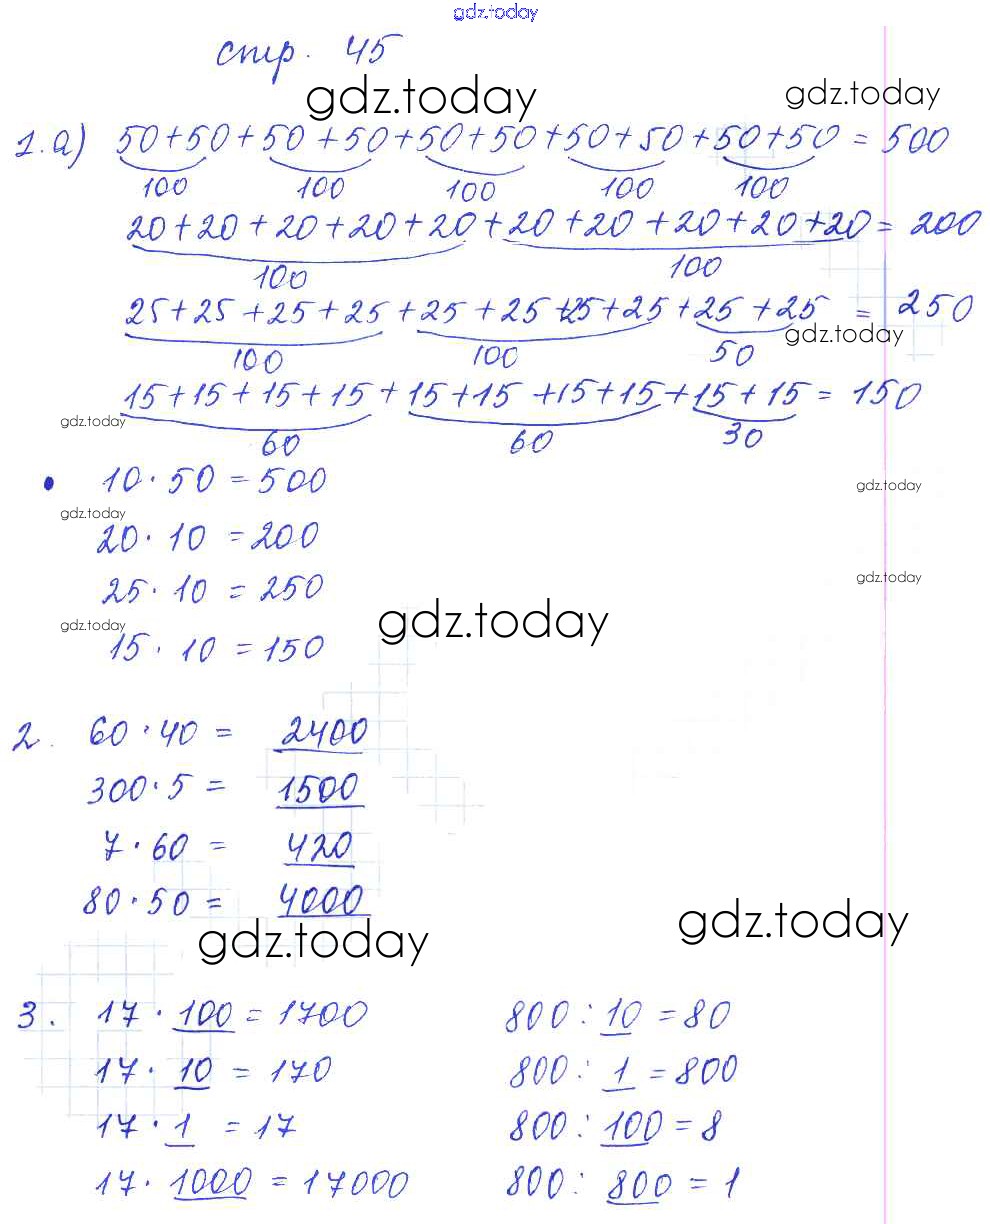 gdz.today
стр. 45
gdz.today gdz.today
1.а) 50+50+50+50+50+50+50+50+50+50=500
100 100 100 100 100
20+20+20+20+20+20+20+20+20+20=200
100 100
25+25+25+25+25+25+25+25+25+25=250
gdz.today
100 100 50
15+15+15+15+15+15+15+15+15+15=150
gdz.today
60 60 30
• 10·50=500
gdz.today
gdz.today
20·10=200
25·10=250
gdz.today
gdz.today
gdz.today
15·10=150
2. 60·40= 2400
300·5= 1500
7·60= 420
80·50= 4000
gdz.today gdz.today
3. 17·100=1700 800:10=80
17·10=170 800:1=800
17·1=17 800:100=8
17·1000=17000 800:800=1